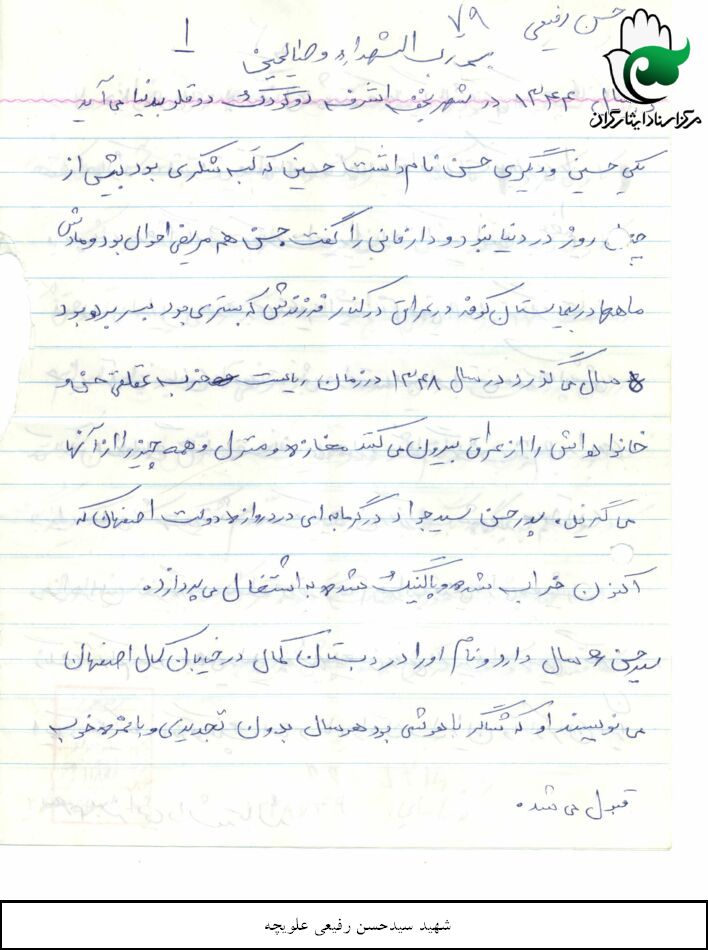 حسن رفیعی ۷۹
۱
بنام رب الشهداء و الصالحین
مرکز اسناد ایثارگران
در سال ۱۳۴۴ در شهر نجف اشرف دو کودک دوقلو بدنیا می آید
یکی حسین و دیگری حسن نام داشت حسین که لب شکری بود بیش از
چند روز در دنیا نبود و دار فانی را گفت حسن هم مریض احوال بود و مادرش
ماهها در بیمارستان کوفه در عراق در کنار فرزندش که بستری بود بسر برده بود
۵ سال می گذرد در سال ۱۳۴۸ در زمان ریاست حزب عفلقی حسن و
خانواده اش را از عراق بیرون می کنند مغازه و منزل و همه چیز را از آنها
می گیرند. پدر حسن سید جواد در گرمابه ای در دروازه دولت اصفهان که
اکنون خراب شده و پارکینگ شده به اشتغال می پردازد.
سید حسن ۶ سال دارد و نام او را در دبستان کمال در خیابان کمال اصفهان
می نویسند او که شاگرد باهوشی بود هر سال بدون تجدیدی و با نمره خوب
قبول می شد.
شهید سیدحسن رفیعی علویچه